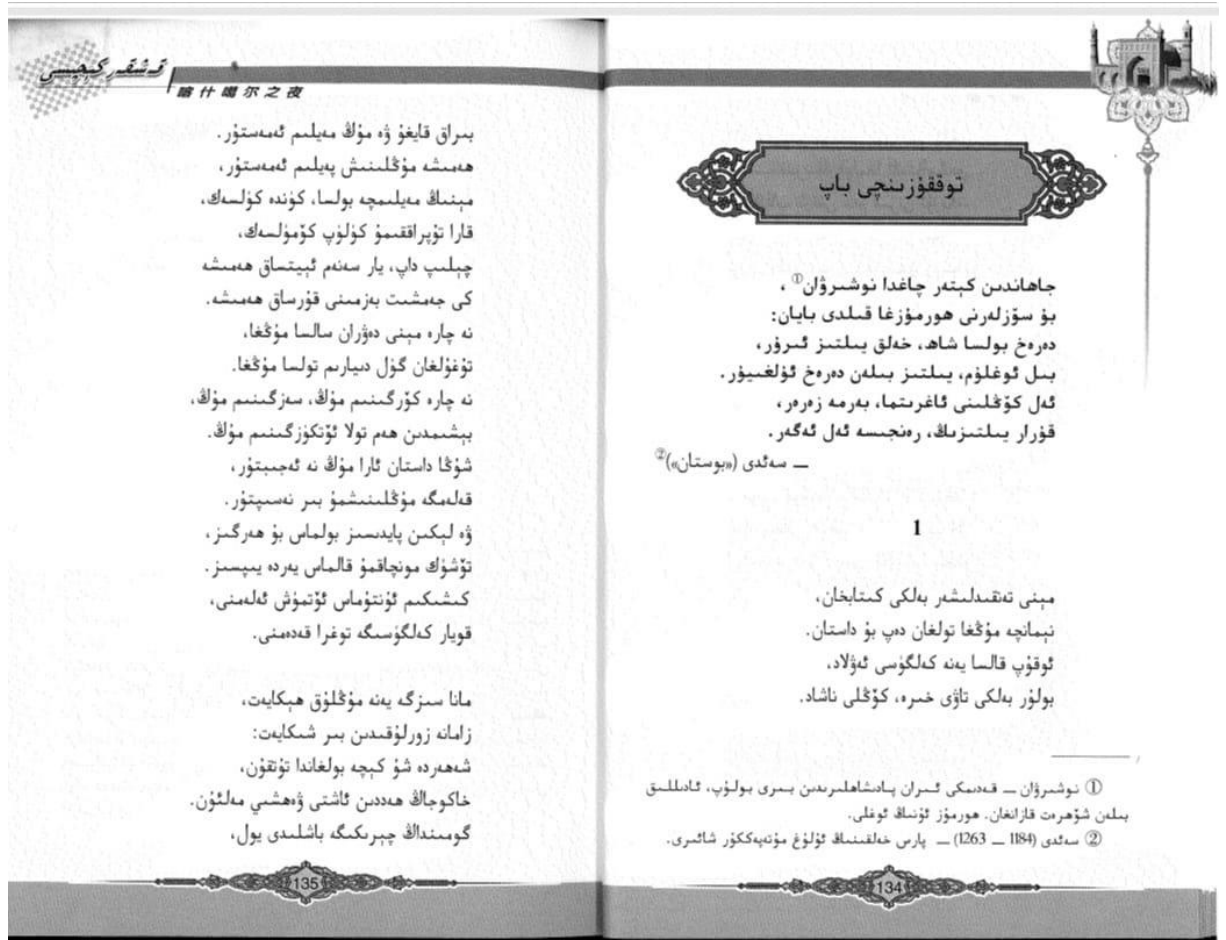 توققۇزىنچى باپ
جاھاندىن كېتەر چاغدا نوشىرۋان① ،
بۇ سۆزلەرنى ھورمۇزغا قىلدى بايان:
دەرەخ بولسا شاھ، خەلق يىلتىز ئىرۇر،
بىل ئوغلۇم، يىلتىز بىلەن دەرەخ ئۇلغىيۇر.
ئەل كۆڭلىنى ئاغرىتما، بەرمە زەرەر،
قۇرار يىلتىزىڭ، رەنجىسە ئەل ئەگەر.
— سەئدى («بوستان»)②
1
مېنى تەنقىدلىشەر بەلكى كىتابخان،
نېمانچە مۇڭغا تولغان دەپ بۇ داستان.
ئوقۇپ قالسا يەنە كەلگۈسى ئەۋلاد،
بولۇر بەلكى تاۋى خىرە، كۆڭلى ناشاد.
① نوشىرۋان — قەدىمكى ئىران پادىشاھلىرىدىن بىرى بولۇپ، ئادىللىق
بىلەن شۆھرەت قازانغان. ھورمۇز ئۇنىڭ ئوغلى.
② سەئدى (1184 — 1263) — پارس خەلقىنىڭ ئۇلۇغ مۇتەپەككۇر شائىرى.
134
قەشقەر كېچىسى
喀什噶尔之夜
بىراق قايغۇ ۋە مۇڭ مەيلىم ئەمەستۇر.
ھەمىشە مۇڭلىنىش پەيلىم ئەمەستۇر،
مېنىڭ مەيلىمچە بولسا، كۈندە كۈلسەك،
قارا تۇپراققىمۇ كۈلۈپ كۆمۈلسەك،
چېلىپ داپ، يار سەنەم ئېيتساق ھەمىشە
كى جەمشىت بەزمىنى قۇرساق ھەمىشە.
نە چارە مېنى دەۋران سالسا مۇڭغا،
تۇغۇلغان گۈل دىيارىم تولسا مۇڭغا.
نە چارە كۆرگىنىم مۇڭ، سەزگىنىم مۇڭ،
بېشىمدىن ھەم تولا ئۆتكۈزگىنىم مۇڭ.
شۇڭا داستان ئارا مۇڭ نە ئەجىبتۇر،
قەلەمگە مۇڭلىنىشمۇ بىر نەسىپتۇر.
ۋە لېكىن پايدىسىز بولماس بۇ ھەرگىز،
تۆشۈك مونچاقمۇ قالماس يەردە يىپسىز.
كىشىكىم ئۇنتۇماس ئۆتمۈش ئەلەمنى،
قويار كەلگۈسىگە توغرا قەدەمنى.
مانا سىزگە يەنە مۇڭلۇق ھېكايەت،
زامانە زورلۇقىدىن بىر شىكايەت:
شەھەردە شۇ كېچە بولغاندا تۇتقۇن،
خاكوجاڭ ھەددىن ئاشتى ۋەھشىي مەلئۇن.
گومىنداڭ چېرىكىگە باشلىدى يول،
135